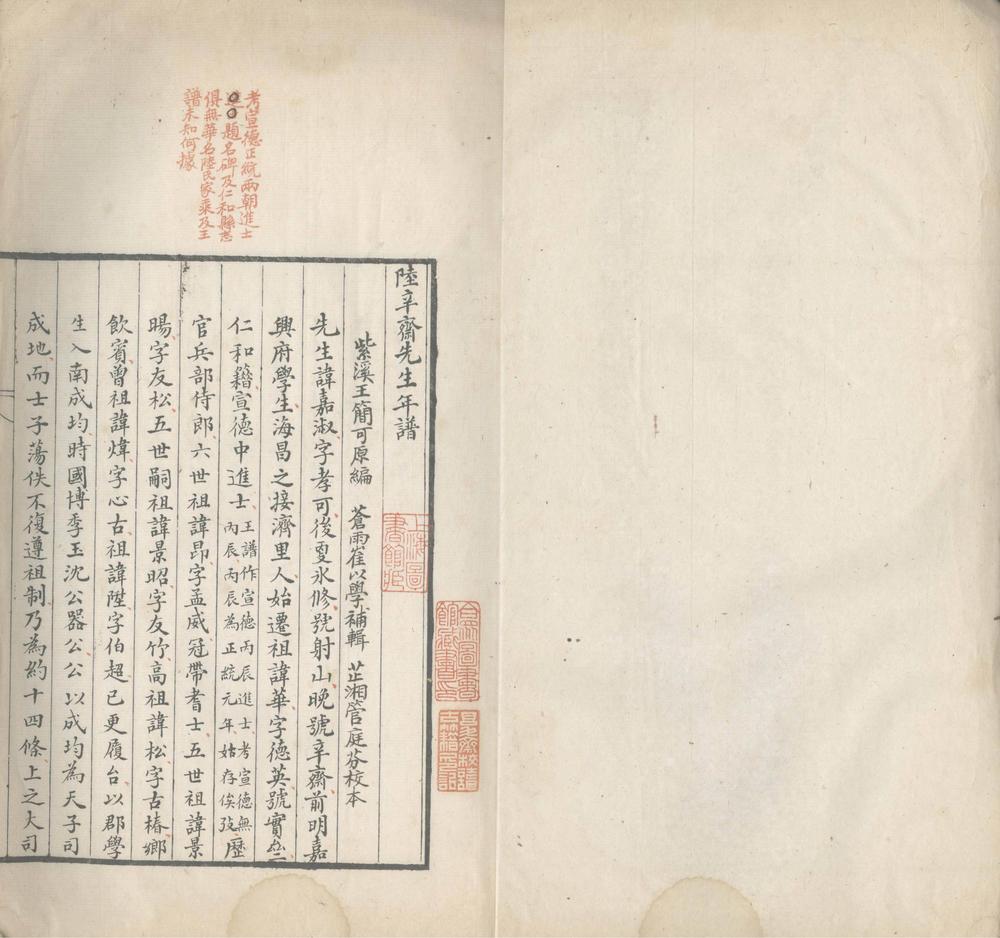 考宣德正統兩朝進士
題名碑及仁和縣志
俱無華名陸氏家乘及王
譜未知何據
陸辛齋先生年譜
紫溪王簡可原編　蒼雨崔以學補輯　芷湘管庭芬校本
先生諱嘉淑字孝可後更冰修號射山晚號辛齋前明嘉
興府學生海昌之接濟里人始遷祖諱華字德英號實
仁和籍宣德中進士王譜作宣德丙辰進士考宣德無
丙辰丙辰為正統元年姑存俟攷歷
官兵部侍郎六世祖諱昂字孟威冠帶耆士五世祖諱景
暘字友松五世嗣祖諱景昭字友竹高祖諱松字古椿鄉
飲賓曾祖諱煒字心古祖諱陞字伯超已更履台以郡學
生入南成均時國博季玉沈公器公公以成均為天子司
成地而士子蕩佚不復遵祖制乃為約十四條上之大司
上海圖
書館藏